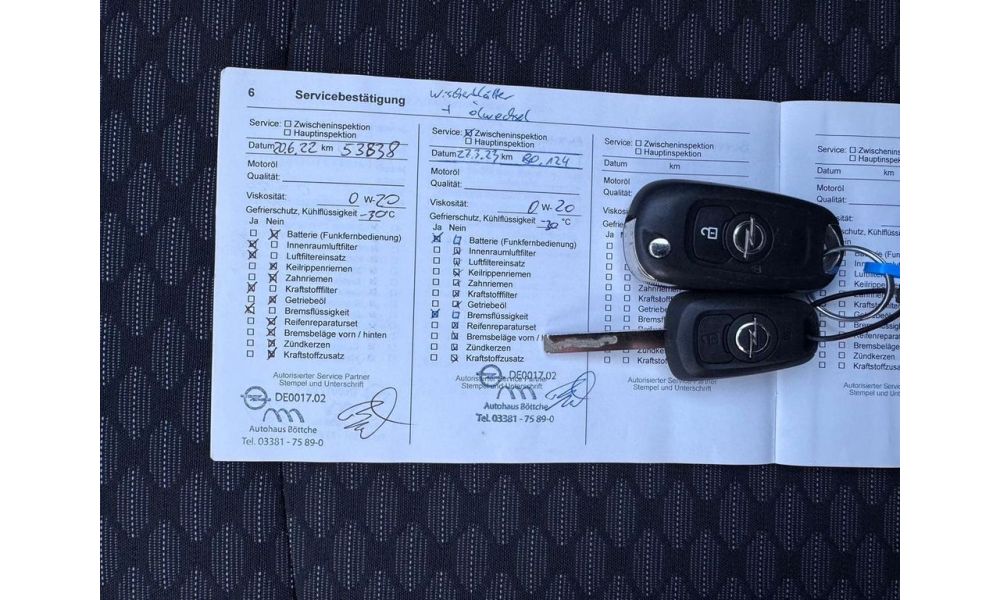 6 Servicebestätigung
Wischerblätter
+ ölwechsel
Service: Zwischeninspektion
Hauptinspektion
Datum 20.6.22 km 53838
Motoröl
Qualität:
Viskosität: 0 W-20
Gefrierschutz, Kühlflüssigkeit -30°C
Ja Nein
Batterie (Funkfernbedienung)
Innenraumluftfilter
Luftfiltereinsatz
Keilrippenriemen
Zahnriemen
Kraftstofffilter
Getriebeöl
Bremsflüssigkeit
Reifenreparaturset
Bremsbeläge vorn / hinten
Zündkerzen
Kraftstoffzusatz
Autorisierter Service Partner
Stempel und Unterschrift
DE0017.02
Autohaus Böttche
Tel. 03381 - 75 89-0
Service: Zwischeninspektion
Hauptinspektion
Datum 27.3.23 km 80.124
Motoröl
Qualität:
Viskosität: 0 W-20
Gefrierschutz, Kühlflüssigkeit -30 °C
Ja Nein
Batterie (Funkfernbedienung)
Innenraumluftfilter
Luftfiltereinsatz
Keilrippenriemen
Zahnriemen
Kraftstofffilter
Getriebeöl
Bremsflüssigkeit
Reifenreparaturset
Bremsbeläge vorn /
Zündkerzen
Kraftstoffzusatz
Autorisierter Service Partner
Stempel und Unterschrift
DE0017.02
Autohaus Böttche
Tel. 03381 - 75 89-0
Service: Zwischeninspektion
Hauptinspektion
Datum km
Motoröl
Qualität:
Viskosität:
Ja
Zündkerzen
Kraftstoffzusatz
Autorisierter Service Partner
Stempel und Unterschrift
Service: Zwischenins
Hauptinspek
Datum km
Motoröl
Qualität:
Zündkerzen
Kraftstoffzusatz
Autorisierter Serv
Stempel und Unt